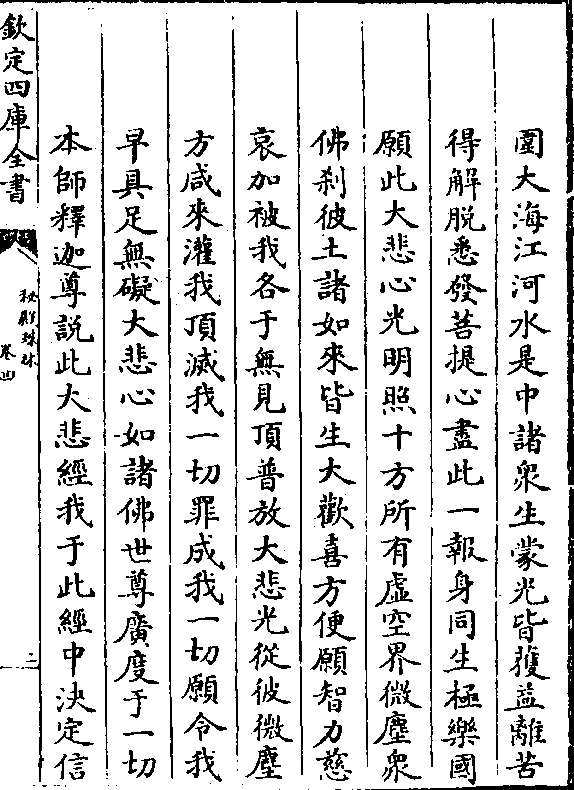 圍大海江河水是中諸衆生蒙光皆獲益離苦
得解脫悉發菩提心盡此一報身同生極樂國
願此大悲心光明照十方所有虛空界微塵衆
佛刹彼土諸如來皆生大歡喜方便願智力慈
哀加被我各于無見頂普放大悲光從彼微塵
方咸來灌我頂滅我一切罪成我一切願令我
早具足無礙大悲心如諸佛世尊廣度于一切
本師釋迦尊說此大悲經我于此經中決定信
欽定四庫全書
秘殿珠林
卷四
二